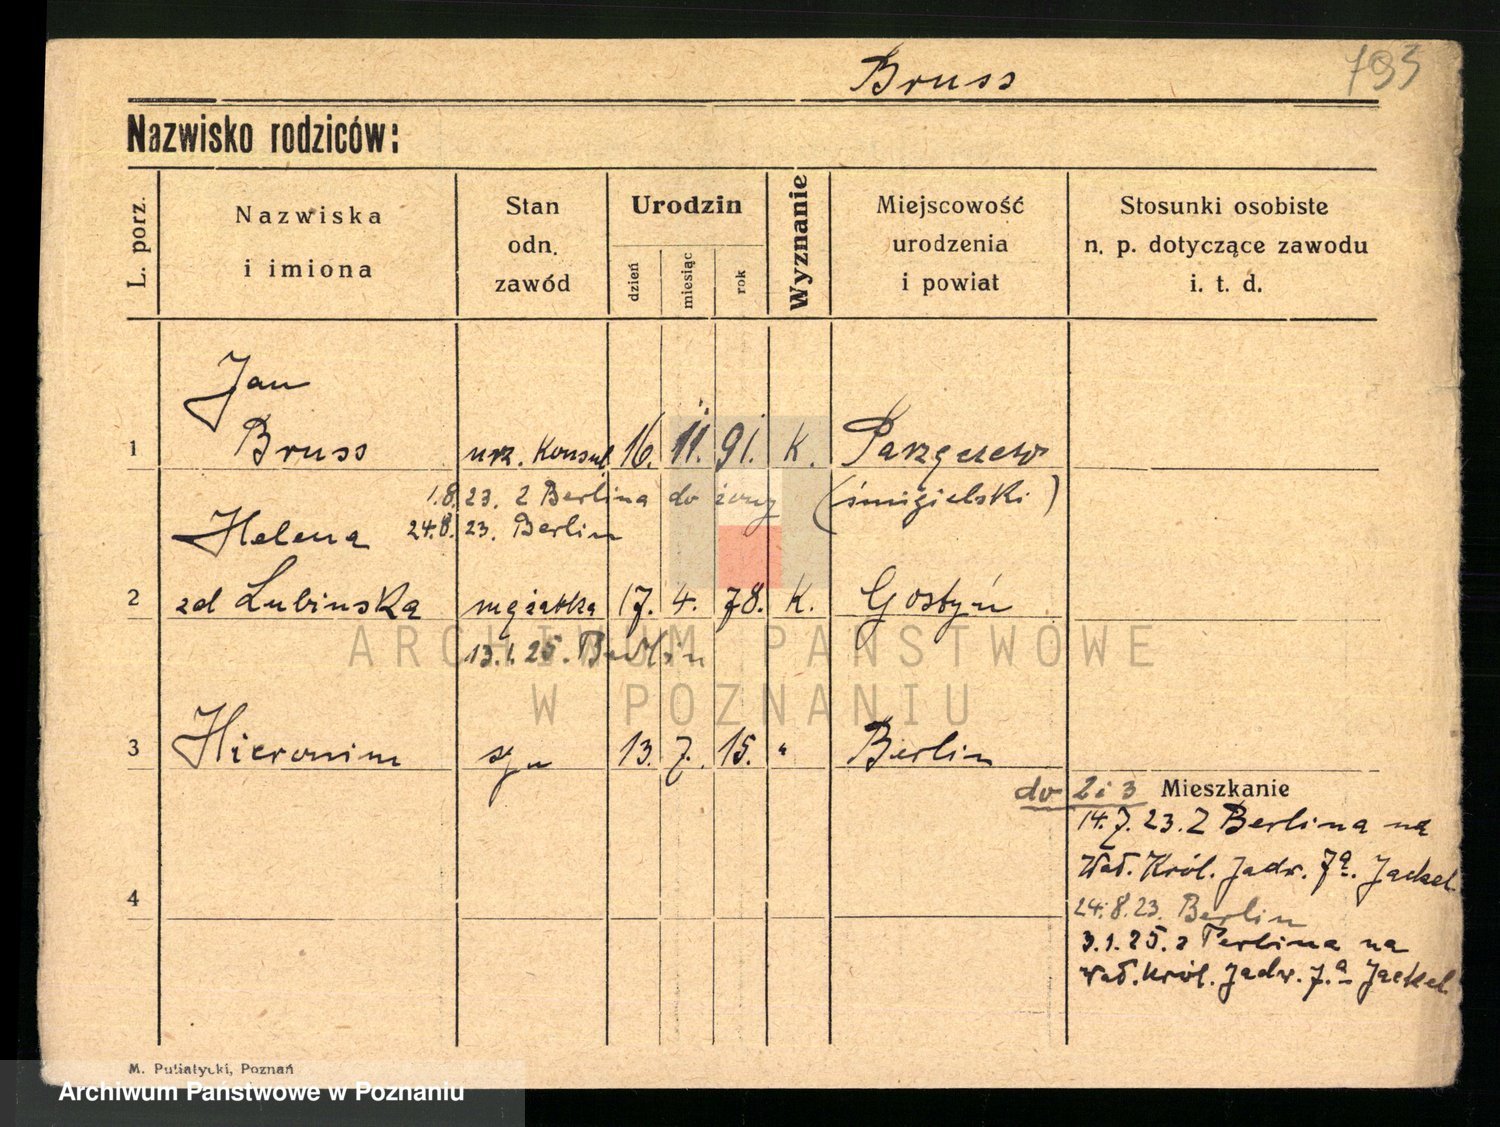 Bruss
Nazwisko rodziców:
L. porz.
Nazwiska
i imiona
Stan
odn.
zawód
Urodzin
dzień
miesiąc
rok
Wyznanie
Miejscowość
urodzenia
i powiat
Stosunki osobiste
n. p. dotyczące zawodu
i. t. d.
Jan
1 Bruss urz. Konsul. 16. 11. 91. K. Parzęczew
1.8. 23. Z Berlina do żony (śmigielski)
24.8. 23. Berlin
Helena
2 zd Lubinska mężatka 17. 4. 78. K. Gostyń
13.1.25. Berlin
3 Hieronim syn 13. 7. 15. " Berlin
do 2 i 3 Mieszkanie
14.7.23. Z Berlina na
Wał. Król. Jadw. 7a. Jackel.
24.8.23. Berlin
3.1.25. z Berlina na
wał. Król. Jadw. 7.a Jackel.
4
M. Putiatycki, Poznań
ARCHIWUM PAŃSTWOWE
W POZNANIU
Archiwum Państwowe w Poznaniu